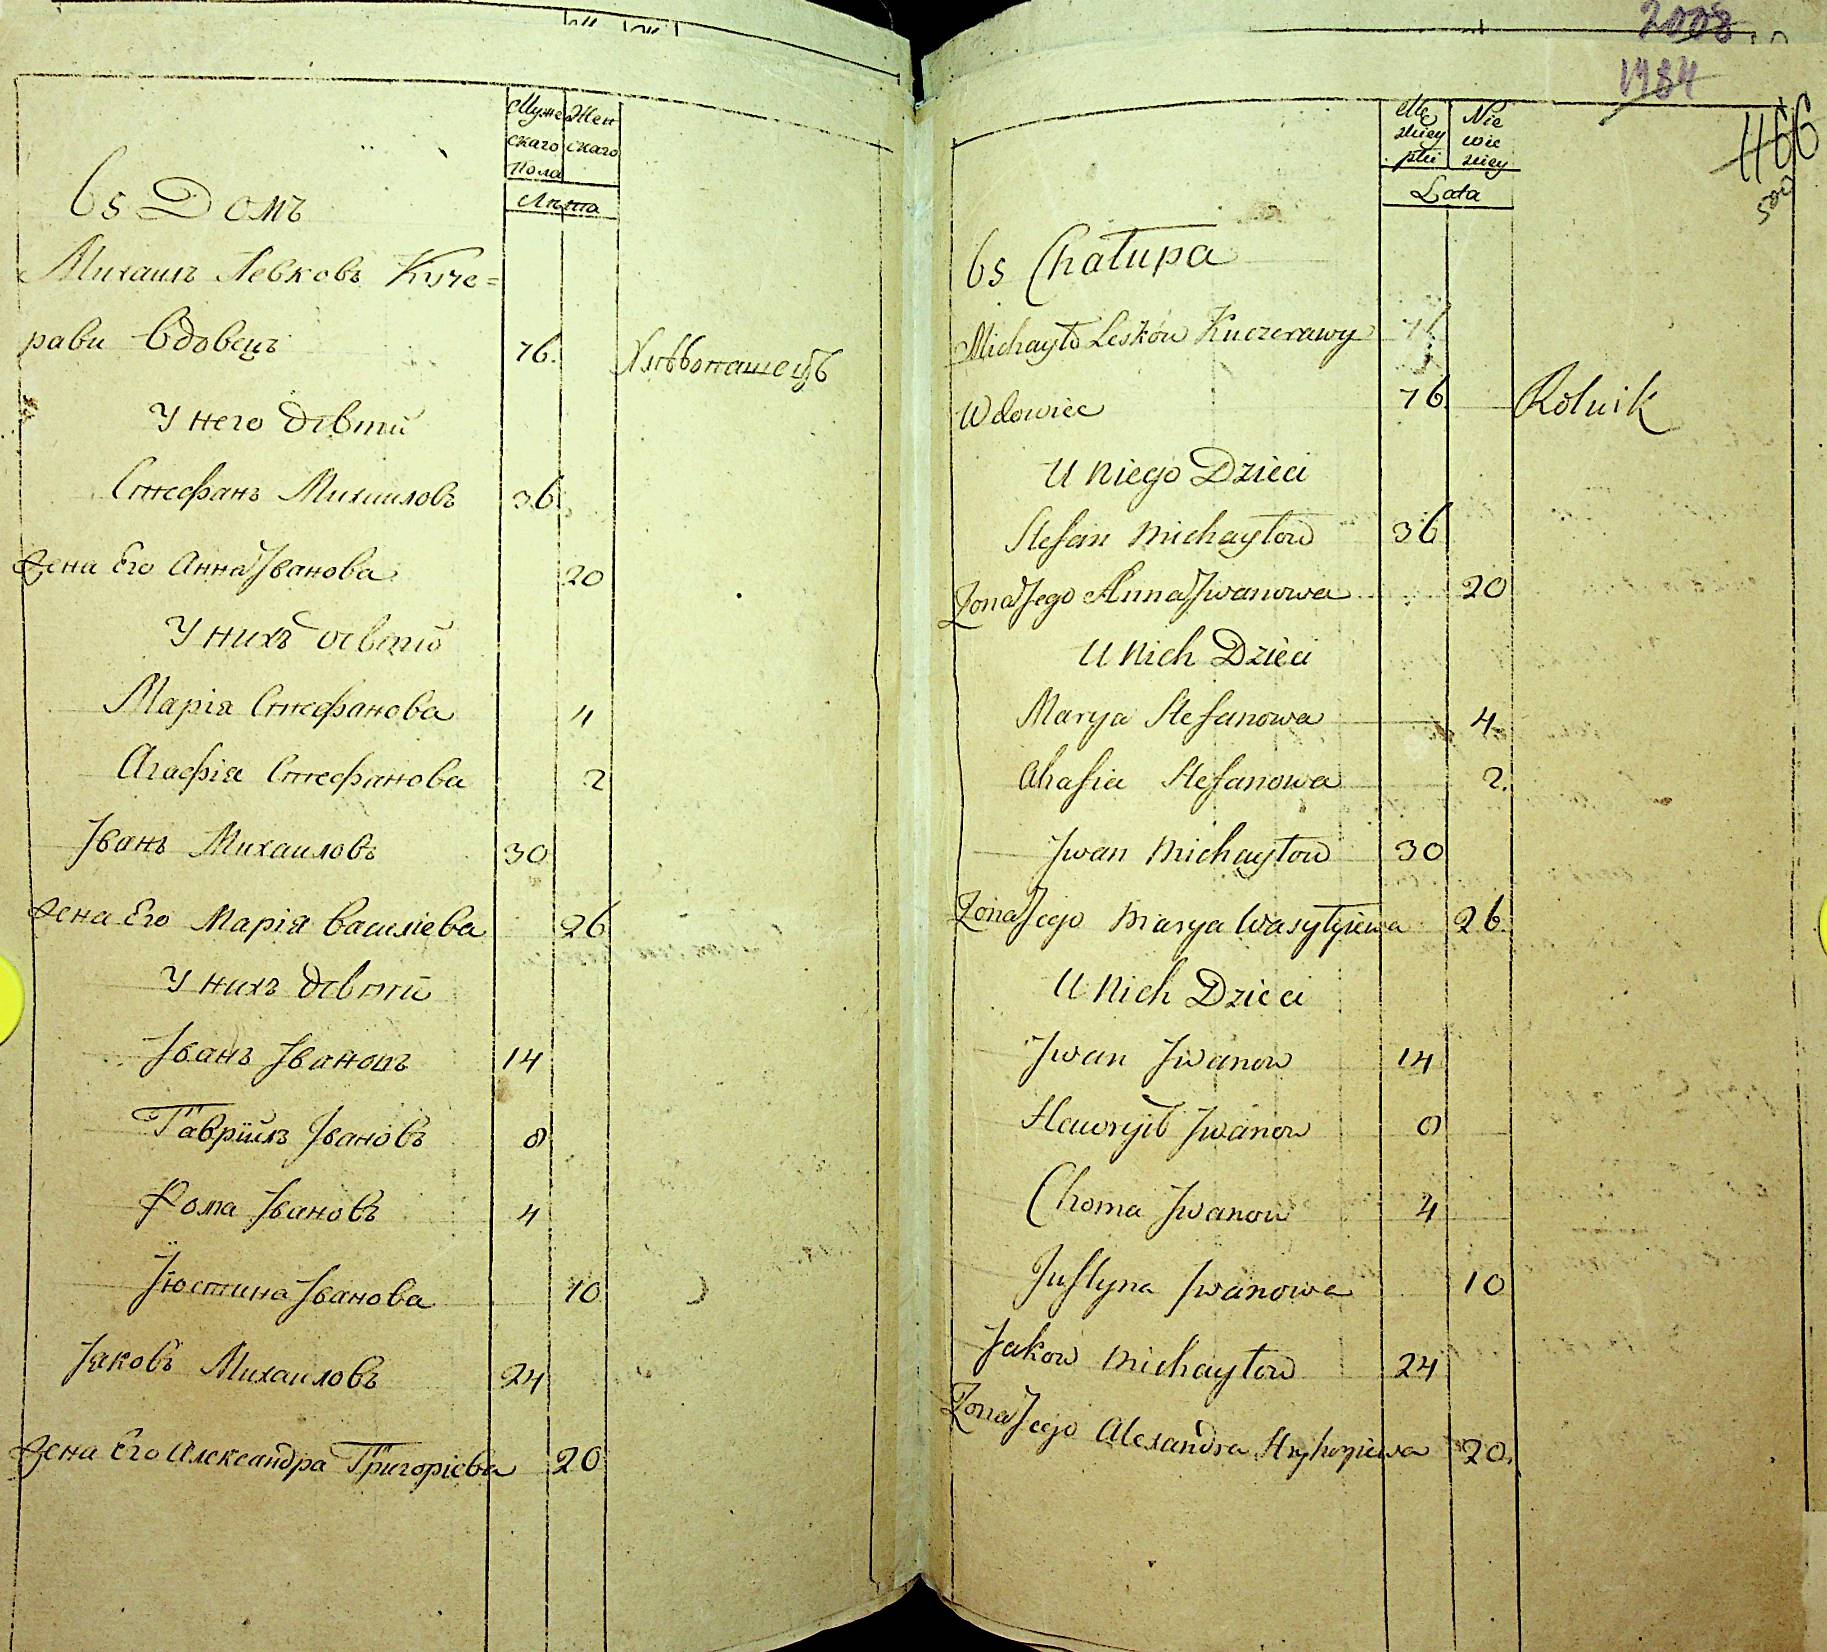 Муже Жен
скаго скаго
Пола
Лѣта
65 Домъ
Михаилъ Левковъ Куче=
рави Вдовецъ 76. Хлѣбопашецъ
У него дѣти
Стефанъ Михаиловъ 36.
Жена Его Анна Іванова 20
У нихъ дѣти
Марія Стефанова 4
Агафія Стефанова 2
Іванъ Михаиловъ 30
Жена Его Марія Василіева 26
У нихъ дѣти
Іванъ Івановъ 14
Гавріилъ Івановъ 8
Фома Івановъ 4
Іюстина Іванова 10
Іяковъ Михаиловъ 24
Жена Его Александра Григоріева 20
2008
1984
466
500
Mę Nie
zkiey wie
płci zkiey
Lata
65 Chałupa
Michayło Leskow Kuczerawy
Wdowiec 76 Rolnik
U Niego Dzieci
Stefan Michayłow 36
Zona Jego Anna Jwanowa 20
U Nich Dzieci
Marya Stefanowa 4
Ahafia Stefanowa 2.
Jwan Michayłow 30
Zona Jego Marya Wasylyiewa 26.
U Nich Dzieci
Jwan Jwanow 14
Hawryił Jwanow 8
Choma Jwanow 4
Justyna Jwanowa 10
Jakow Michayłow 24
Zona Jego Alexandra Hryhoryiewa 20.